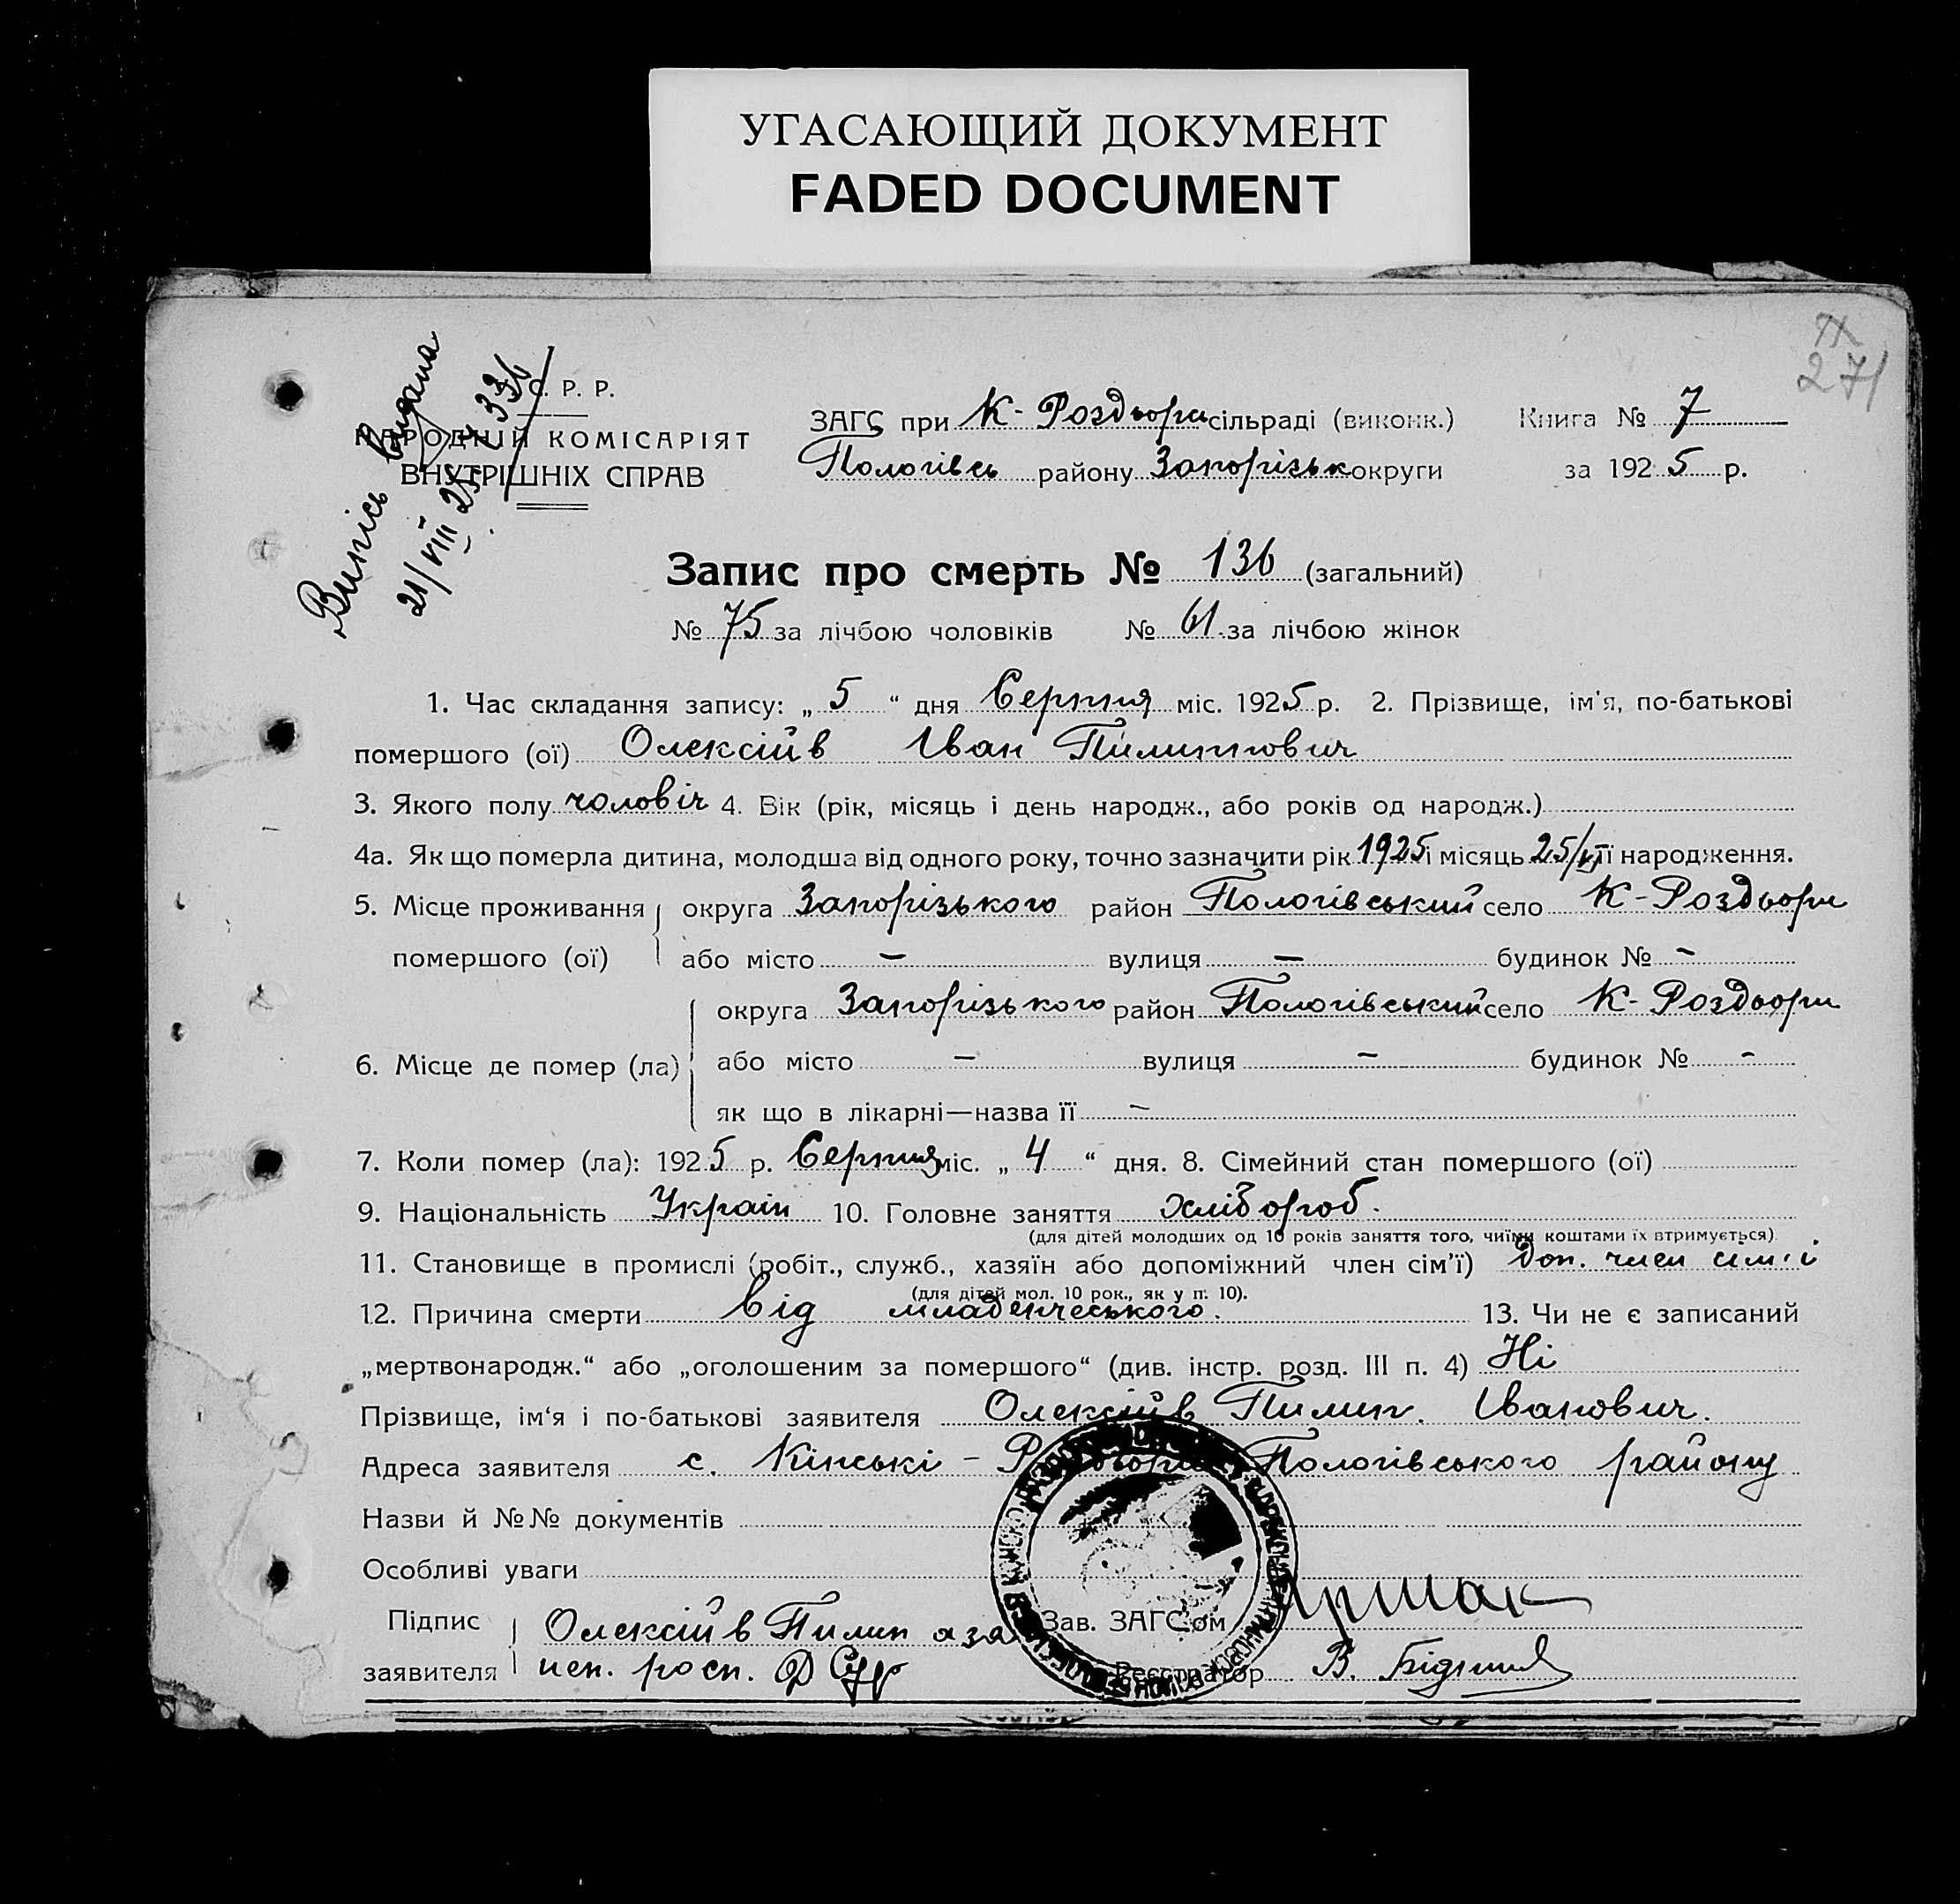 УГАСАЮЩИЙ ДОКУМЕНТ
FADED DOCUMENT
271
Випісь видана
21/VIII 25 № 336
С. Р. Р.
НАРОДНІЙ КОМІСАРІЯТ
ВНУТРІШНІХ СПРАВ
ЗАГС при К-Роздори сільраді (виконк.) Книга № 7
Пологівсь району Запорізьк округи за 1925 р.
Запис про смерть № 136 (загальний)
№ 75 за лічбою чоловіків № 61 за лічбою жінок
1. Час складання запису: „ 5 “ дня Серпня міс. 1925 р. 2. Прізвище, ім'я, по-батькові
помершого (ої) Олексіїв Іван Пилипович
3. Якого полу чоловіч 4. Вік (рік, місяць і день народж., або років од народж.)
4а. Як що померла дитина, молодша від одного року, точно зазначити рік 1925 і місяць 25/VI її народження.
5. Місце проживання округа Запорізького район Пологівський село К-Роздори
помершого (ої) або місто – вулиця – будинок № –
округа Запорізького район Пологівський село К-Роздори
6. Місце де помер (ла) або місто – вулиця – будинок № –
як що в лікарні—назва її –
7. Коли помер (ла): 1925 р. Серпня міс. „ 4 “ дня. 8. Сімейний стан помершого (ої)
9. Національність Україн 10. Головне заняття хлібороб.
(для дітей молодших од 10 років заняття того, чиїми коштами їх втримується)
11. Становище в промислі (робіт., служб., хазяїн або допоміжний член сім'ї) Доп. член сім'ї
(для дітей мол. 10 рок., як у п. 10).
12. Причина смерти від младенчеського. 13. Чи не є записаний
„мертвонародж.“ або „оголошеним за помершого“ (див. інстр. розд. III п. 4) Ні
Прізвище, ім'я і по-батькові заявителя Олексіїв Пилип. Іванович.
Адреса заявителя с. Кінські - Роздори Пологівського району
Назви й №№ документів
Особливі уваги
Підпис Олексіїв Пилип а за Зав. ЗАГС'ом
заявителя неп. росп. Реєстратор В.